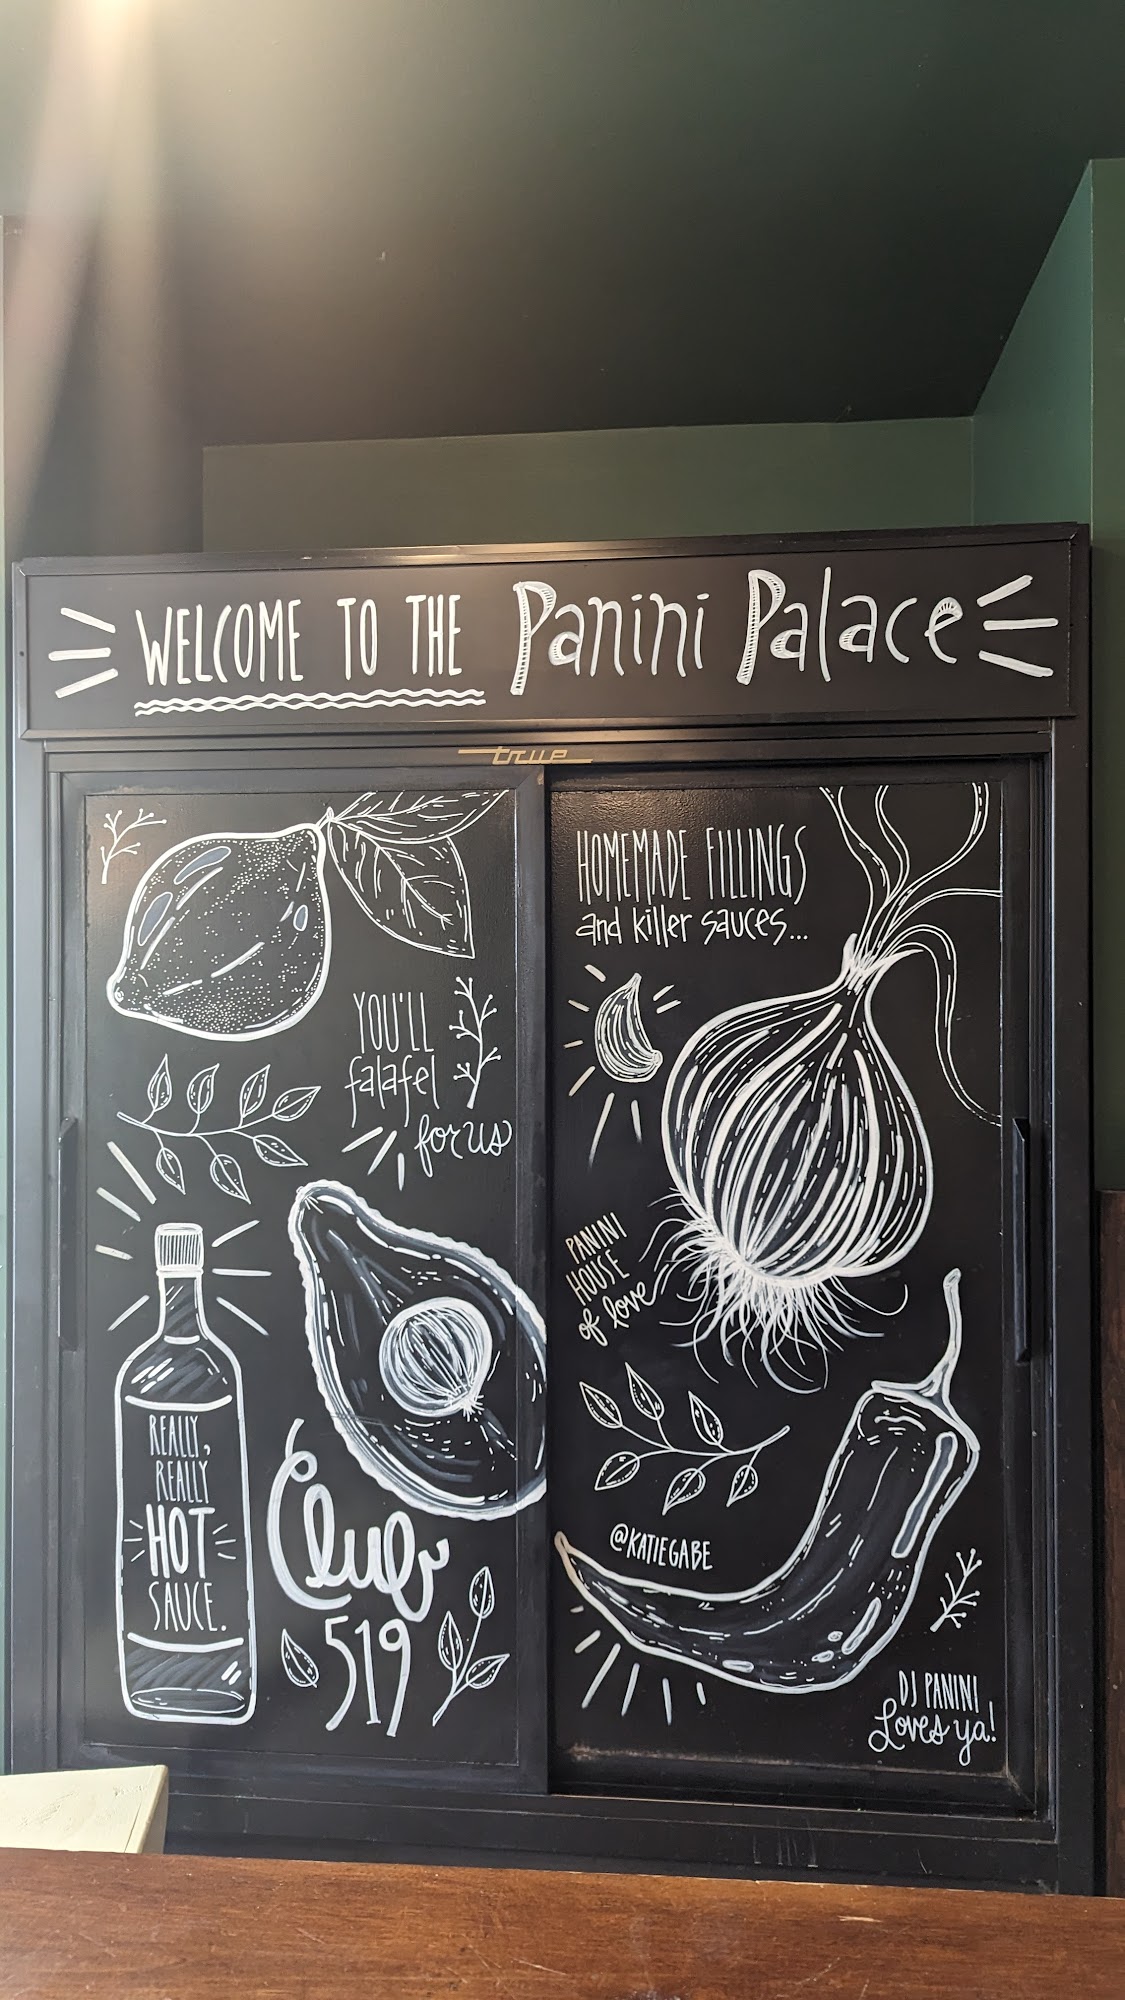 WELCOME TO THE Panini Palace
true
YOU'LL
falafel
for us
REALLY,
REALLY
HOT
SAUCE.
Club
519
HOMEMADE FILLINGS
and killer sauces...
PANINI
HOUSE
of love
@KATIEGABE
DJ PANINI
Loves ya!